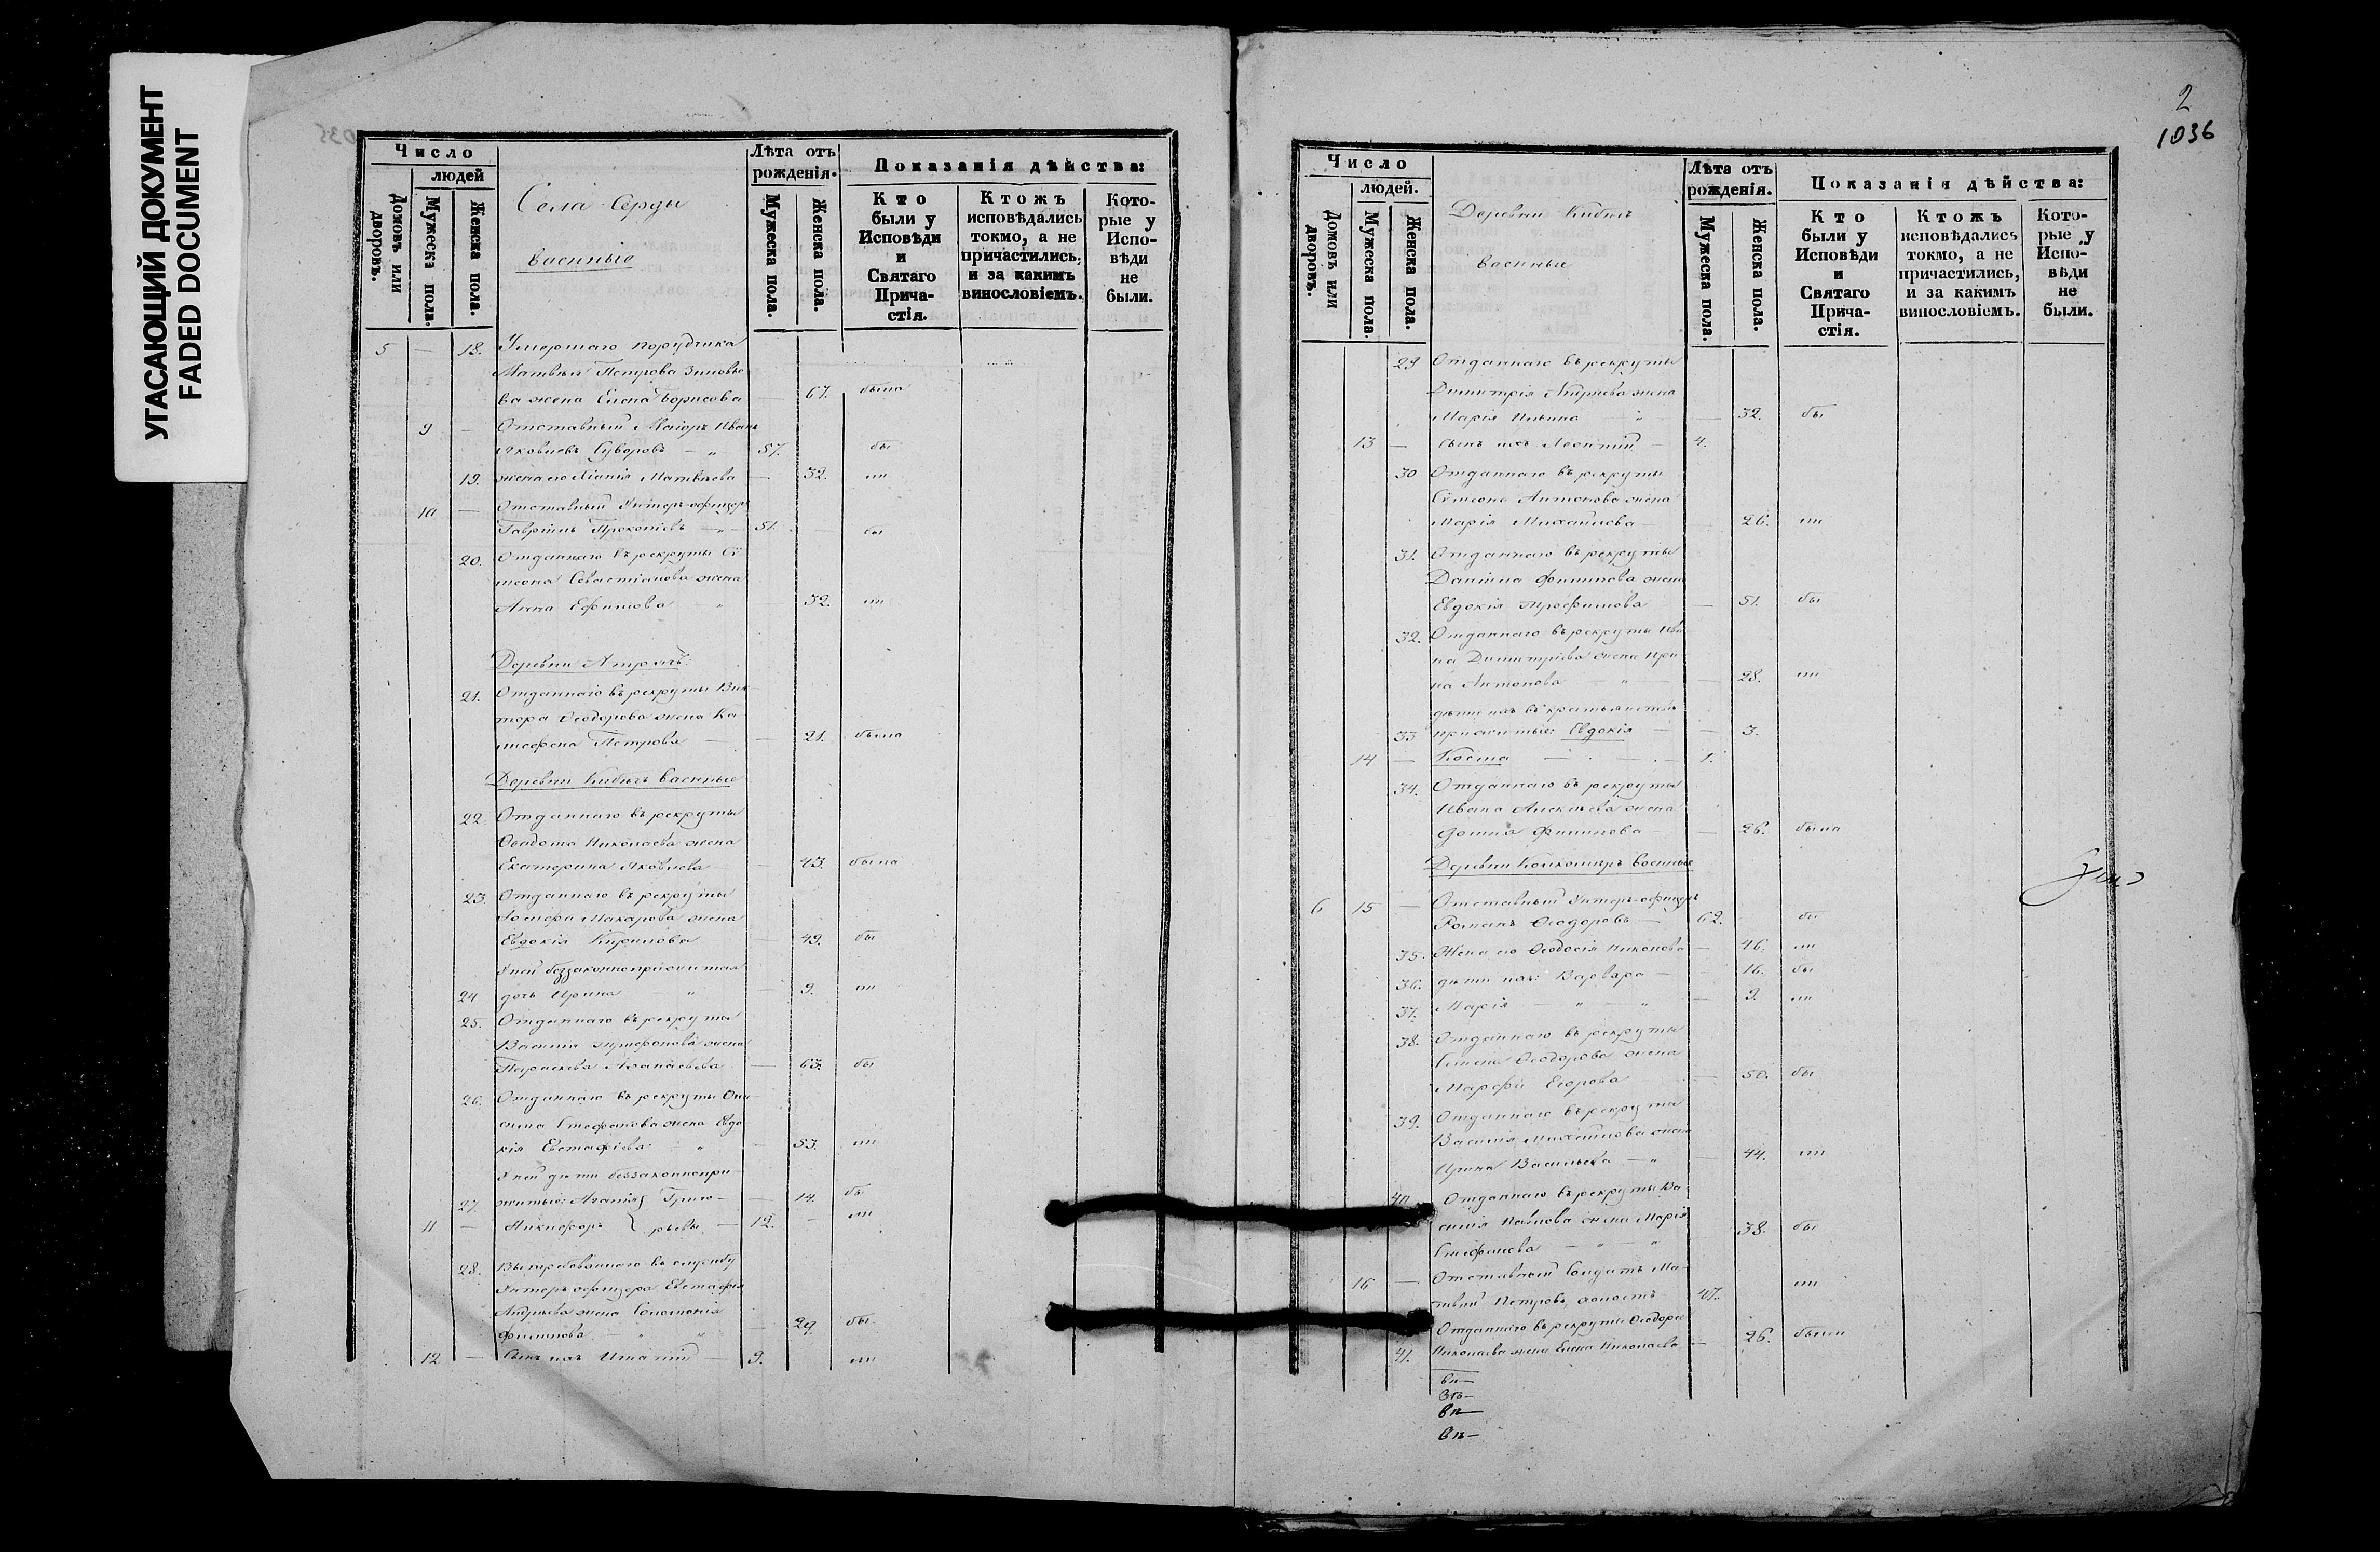 УГАСАЮЩИЙ ДОКУМЕНТ
FADED DOCUMENT
Число
людей
Домовъ или дворовъ.
Мужеска пола.
Женска пола.
Села Серды
военные
Лѣта отъ рожденія.
Мужеска пола.
Женска пола.
Показанія дѣйства:
Кто были у Исповѣди и Святаго Прича-стія.
Ктожъ исповѣдались токмо, а не причастились, и за какимъ винословіемъ.
Кото-рые у Испо-вѣди не были.
5 — 18. Умершаго порутчика
Матвѣя Петрова Зиновье
ва жена Елена Борисова — 67. была
9 — Отставный Маіоръ Иванъ
Яковлевъ Суворовъ — „ 57. бы
19. жена его Матвѣева — 32. ли
10 — Отставный Унтеръ-офицеръ
Гавріилъ Прокопіевъ — „ — 51. — бы
20. Отданнаго въ рекруты Сѵ
меона Севастіанова жена
Анна Ефимова „ — 32. ли
Деревни
21. Отданнаго въ рекруты Вик
тора Ѳеодорова жена Ка
Петрова — — 21. была
Деревни военные
22 Отданнаго въ рекруты
Ѳеодота Николаева жена
Екатерина Яковлева — 43. была
23. Отданнаго въ рекруты
Іосифа Макарова жена
Евдокія Кирилова — 49. бы
У ней беззаконноприжитая
24 дочь Ирина „ — 9. ли
25. Отданнаго въ рекруты
Василія жена
Параскева Аѳанасьева — 63. бы
26. Отданнаго въ рекруты Они
сима Стефанова жена Евдо
кія Евстафіева „ — 53. ли
У ней дѣти беззаконнопри
27. житые: Агапія } Григо- — 14. бы
11 — Никифоръ } рьевы — 12. — ли
28. Вытребованнаго въ службу
Унтеръ офицера Евстафія
Андреева жена Соломонія
Филипова — „ „ — 29. бы
12 — Сынъ ихъ — 9. ли
2
1036
Число
людей.
Домовъ или дворовъ.
Мужеска пола.
Женска пола.
Деревни
военные
Лѣта отъ рожденія.
Мужеска пола.
Женска пола.
Показанія дѣйства:
Кто были у Исповѣди и Святаго Прича-стія.
Ктожъ исповѣдались токмо, а не причастились, и за какимъ винословіемъ.
Кото-рые у Испо-вѣди не были.
29 Отданнаго въ рекруты
Димитрія Андреева жена
Марія Ильина „ — 32. бы
13 — сынъ ихъ Леонтій — 4.
30 Отданнаго въ рекруты
Сѵмеона Антонова жена
Марія Михайлова — — 26. ли
31. Отданнаго въ рекруты
Даніила Филипова жена
Евдокія Трофимова — 51. бы
32. Отданнаго въ рекруты Ива
на Димитріева жена Ири
на Антонова — „ — — 28. ли
дѣти ихъ
33 прижитые: Евдокія — — 3.
14 — Косма — . — . — 1.
34. Отданнаго въ рекруты
Ивана Алексѣева жена
Домна Филипова — — 26. была
Деревни военные
6 15 — Отставный Унтеръ-офицеръ
Романъ Ѳеодоровъ — 62. бы
35. Жена его Ѳеодосія Никонова — 46. ли
36. дѣти ихъ: Варвара — — 16. бы
37. Марія — „ — „ — 9. ли
38. Отданнаго въ рекруты
Ѳеодорова жена
Марфа Егорова — 50. бы
39. Отданнаго въ рекруты
Василія Михайлова жена
Ирина Васильева — „ — 44. ли
40 Отданнаго въ рекруты Ва
силія жена Марія
Стефанова — „ — „ 38. бы
16 — Отставный Солдатъ Ма
твѣй Петровъ холостъ 47. ли
Отданнаго въ рекруты Ѳеодора
41. Николаева жена Елена Николаева — 26. были